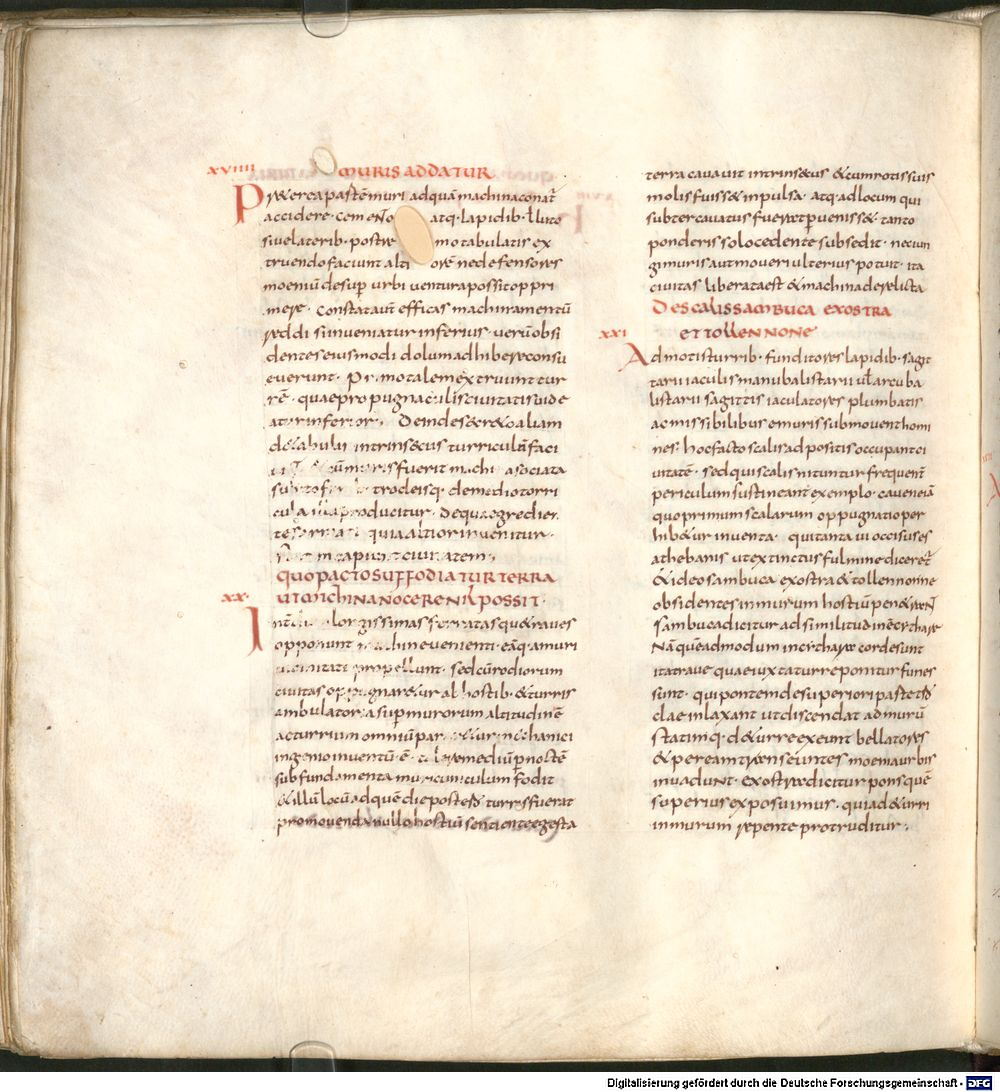 XVIIII MURIS ADDATUR
Praeterea partē muri ad quā machina conat̄
accidere· cemento atq· lapidib· ł luto
sive laterib· postre mo tabulatis ex
truendo faciunt alti orē ne defensores
moeniū desup urbi ventura possit oppri
mere· constat aut̄ efficas machinamentū
reddi si inveniatur inferius· verū obsi
dentes eiusmodi dolum adhibere consu
everunt· Pri motalem extruunt tur
rē· quae propugnaculis civitatis vide
atur inferior· deinde secreto aliam
de tabulis intrinsecus turriculā faci
cū muris fuerit machi asociata
trocleisq· de medio turri
cula producitur· de qua egredien
tes quia altior invenitur·
capiunt civitatem,
QUO PACTO SUFFODIATUR TERRA
XX· UT MACHINA NOCERE NIL POSSIT·
Inter longissimas ferratasque traves
opponunt machine venienti· eāq· a muri
vicinitate propellunt· sed cū rodiorum
civitas oppugnaretur ab hostib· & turris
ambulatoria sup murorum altitudinē
ac turrium omniū par mechanici
ingenio inventū·ē· remediū p noctē
sub fundamenta muri cuniculum fodit
& illū locū ad quē die postera turris fuerat
promovenda nullo hostiū sentiente egesta
terra cavavit intrinsecus & cum rotis suis
molis fuisset inpulsa· atq· ad locum qui
subter cavatus fuerat pervenisset· tanto
ponderi solo cedente subsedit· nec iun
gi muris aut moveri ulterius potuit· ita
civitas liberata est & machina derelicta
DE SCALIS SAMBUCA EXOSTRA
XXI ET TOLLENNONE
Admotis turrib· funditores lapidib· sagit
tarii iaculis manubalistarii vł arcuba
listarii sagittis iaculatores plumbatis
ac missibilibus e muris submovent homi
nes· hoc facto scalis adpositis occupant ci
vitatē· sed qui scalis nituntur frequent̄
periculum sustineant exemplo· cavenei ā
quo primum scalarum oppugnatio per
hibetur inventa· qui tanta vi occisus es
a thebanis ut extinctus fulmine diceret̄
& ideo sambuca exostra & tollennonne
obsidentes in murum hostiū penetrant
sambuca dicitur ad similitudinē citharae
Nā quēadmodum in cithara cordesunt
ita trave quae iuxta turre ponitur funes
sunt· qui pontem de superiori parte tro
cleae inlaxant ut discendat ad murū
statimq· de turre exeunt bellatores
& per eam transeuntes moenia urbis
invadunt· exostra dicitur pons quē
superius exposuimus· quia de turri
in murum repente protruditur,
Digitalisierung gefördert durch die Deutsche Forschungsgemeinschaft - DFG